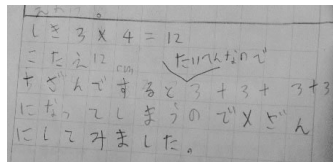 しき3×4=12
こたえ12
たいへんなので
たしざんですると3+3+3+3
になってしまうので×ざん
にしてみました。